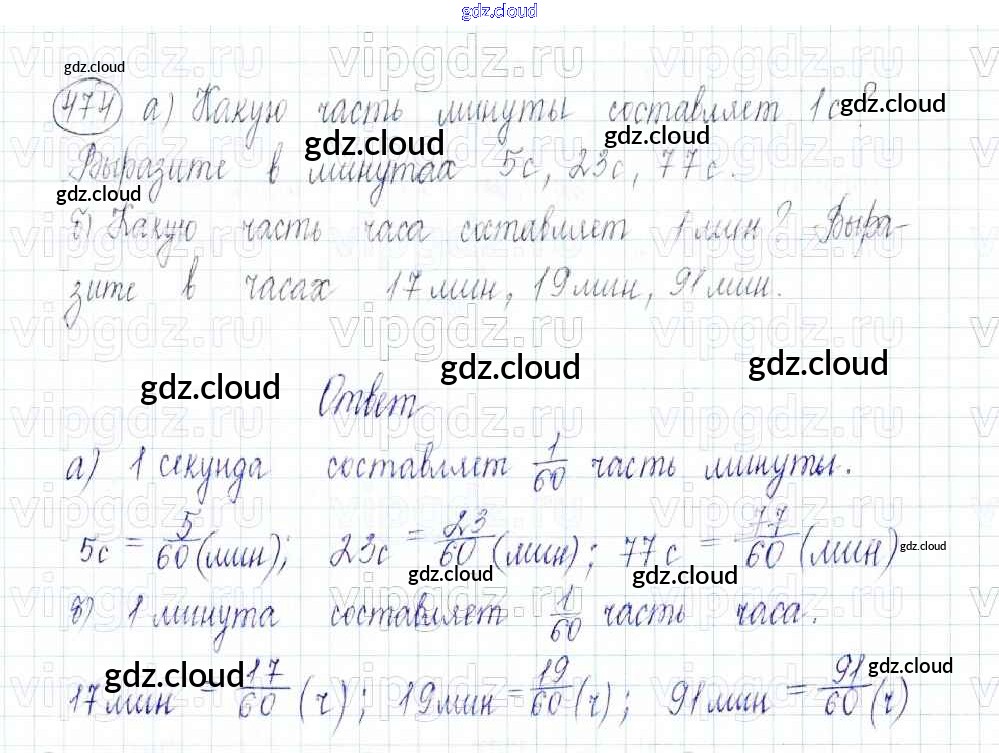 gdz.cloud
vipgdz.ru vipgdz.ru vipgdz.ru
gdz.cloud
474 а) Какую часть минуты составляет 1с?
gdz.cloud gdz.cloud gdz.cloud
Выразите в минутах 5с, 23с, 77с.
gdz.cloud
б) Какую часть часа составляет 1 мин? Выра-
зите в часах 17 мин, 19 мин, 91 мин.
vipgdz.ru vipgdz.ru vipgdz.ru
gdz.cloud gdz.cloud gdz.cloud
Ответ
vipgdz.ru vipgdz.ru vipgdz.ru
а) 1 секунда составляет 1/60 часть минуты.
5с = 5/60 (мин); 23с = 23/60 (мин); 77с = 77/60 (мин)
gdz.cloud gdz.cloud gdz.cloud
б) 1 минута составляет 1/60 часть часа.
gdz.cloud gdz.cloud
17 мин = 17/60 (ч); 19 мин = 19/60 (ч); 91 мин = 91/60 (ч)